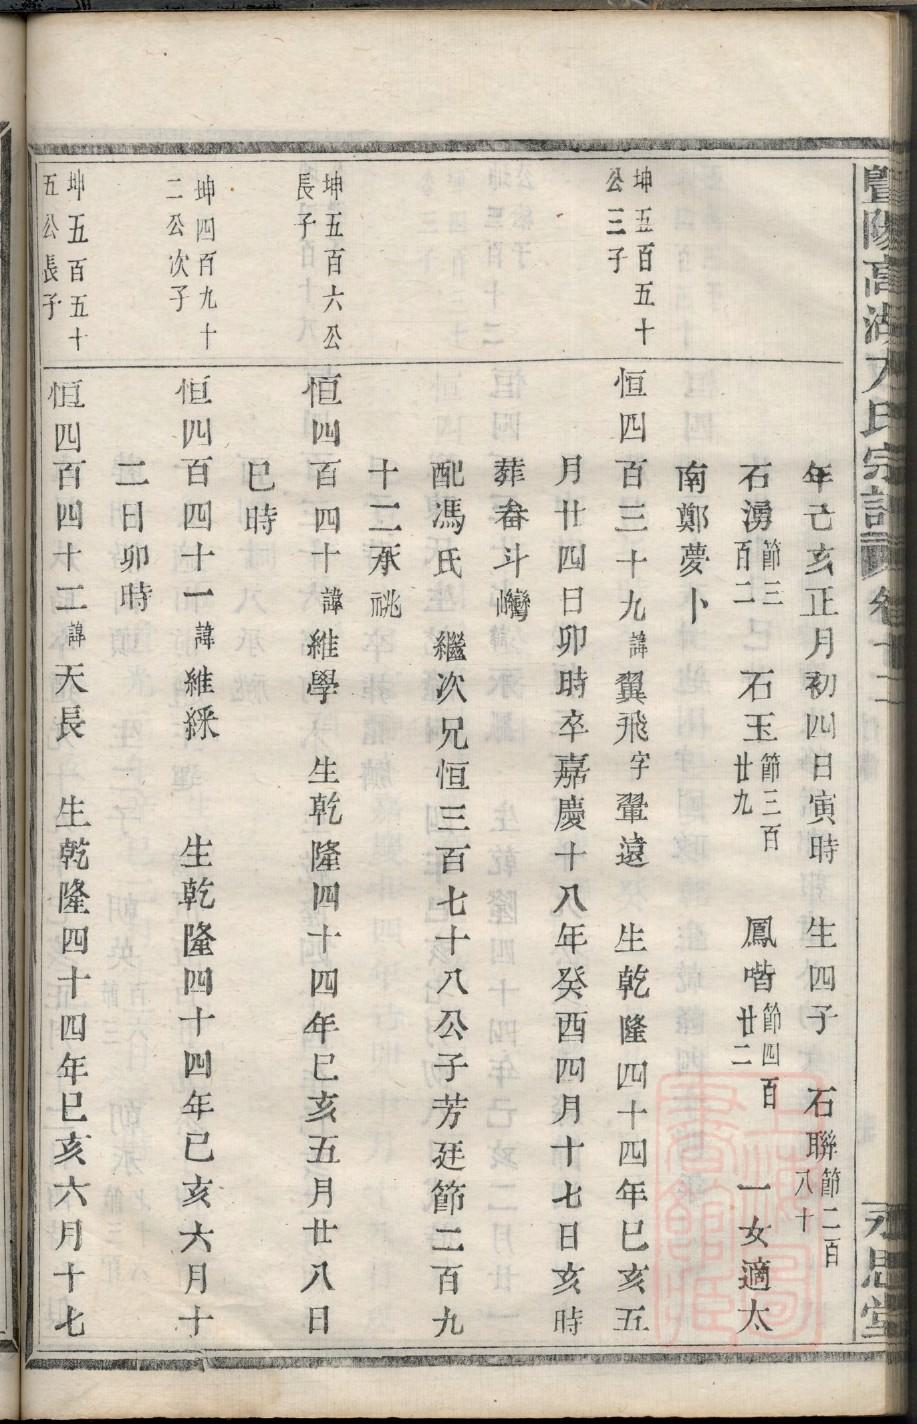 暨陽高湖方氏宗譜 卷十二 永思堂
年己亥正月初四日寅時 生四子 石聯節二百八十
石湧節三百二 石玉節三百廿九 鳳喈節四百廿二 一女適太
南鄭夢卜
坤五百五十公三子
恒四百三十九諱翼飛字翬遠 生乾隆四十四年巳亥五
月廿四日卯時卒嘉慶十八年癸酉四月十七日亥時
葬畚斗灣
配馮氏 繼次兄恒三百七十八公子芳廷節二百九
十二承祧
坤五百六公長子
恒四百四十諱維學 生乾隆四十四年巳亥五月廿八日
巳時
坤四百九十二公次子
恒四百四十一諱維綵 生乾隆四十四年巳亥六月十
二日卯時
坤五百五十五公長子
恒四百四十二諱天長 生乾隆四十四年巳亥六月十七